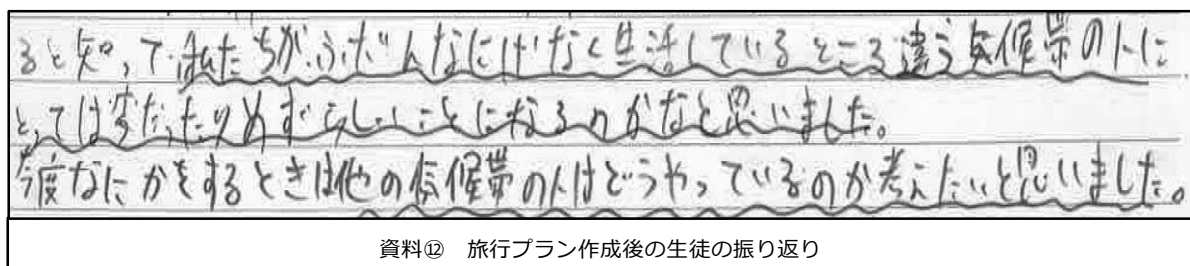 ると知って私たちがふだんなにげなく生活しているところ違う気候帯の人に
とっては変だったりめずらしいことになるのかなと思いました。
今度なにかをするときは他の気候帯の人はどうやっているのか考えたいと思いました。
資料⑫ 旅行プラン作成後の生徒の振り返り